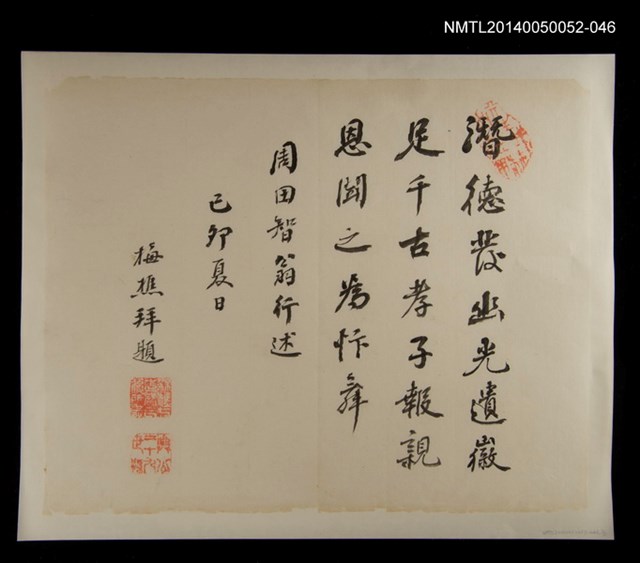 NMTL20140050052-046
潛德發幽光遺徽
足千古孝子報親
恩聞之為忭舞
周田智翁行述
己卯夏日
梅樵拜題